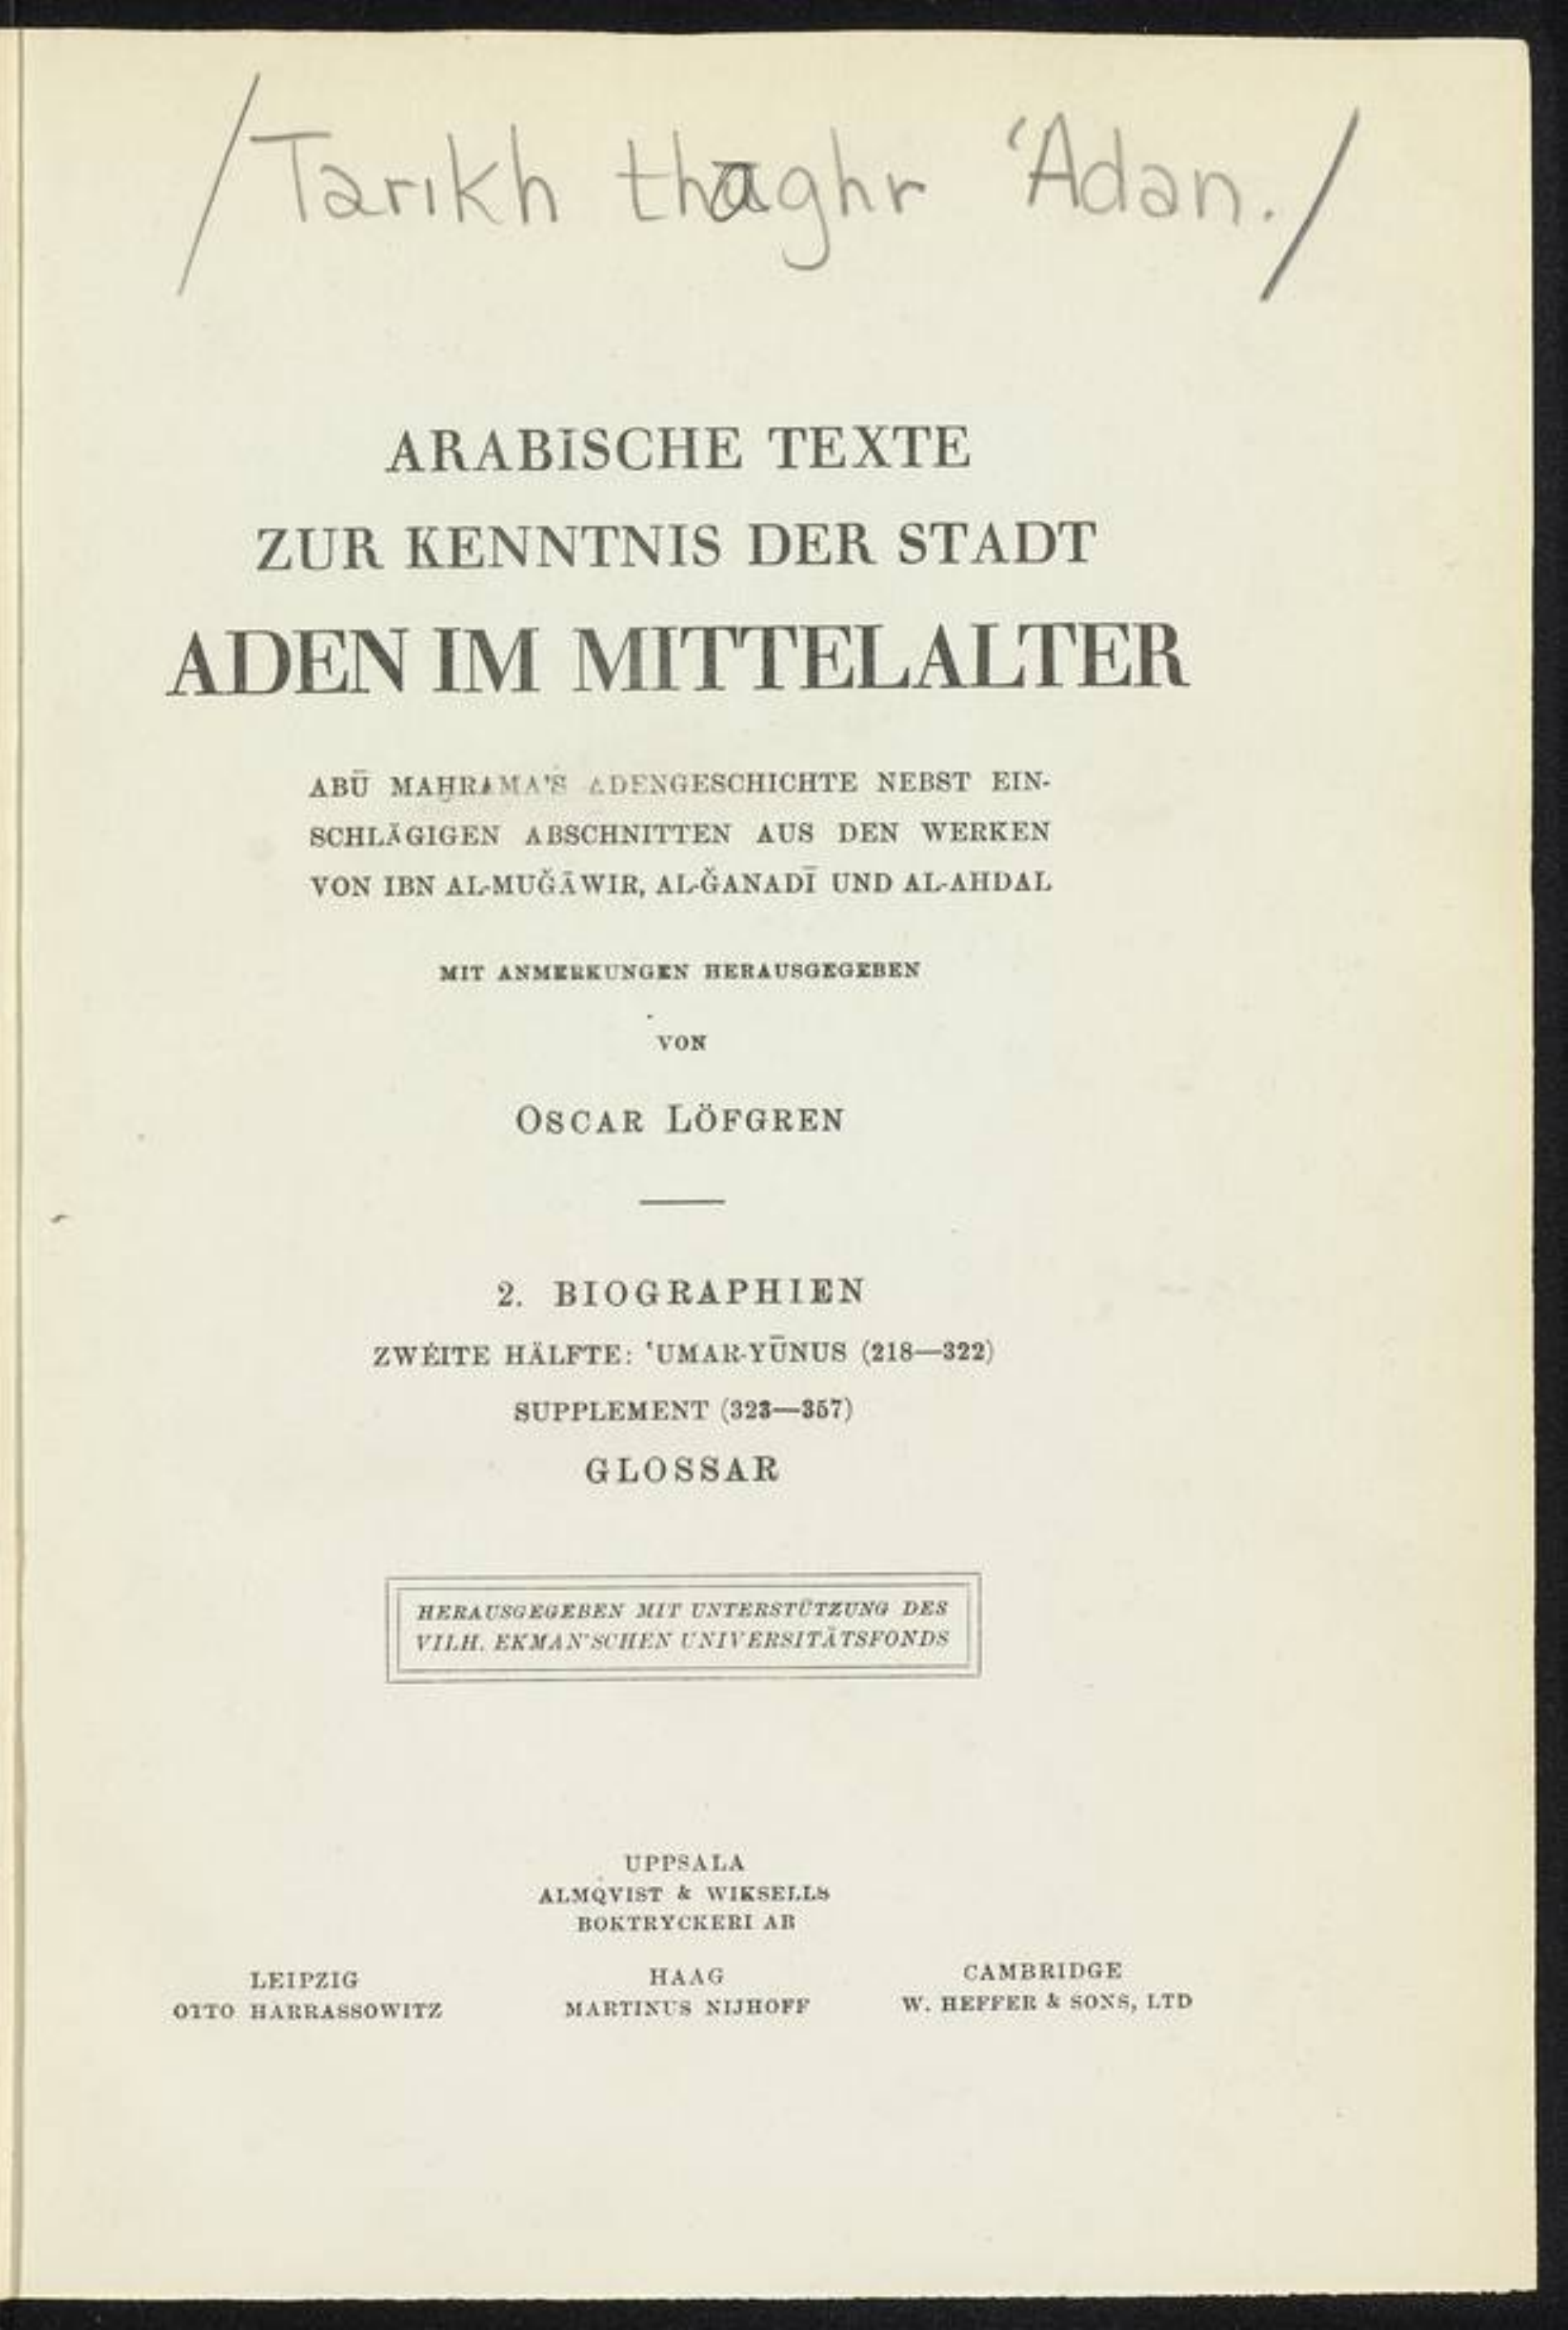 /Tarikh thaghr ʿAdan./
ARABISCHE TEXTE
ZUR KENNTNIS DER STADT
ADEN IM MITTELALTER
ABŪ MAḪRAMA'S ADENGESCHICHTE NEBST EIN-
SCHLÄGIGEN ABSCHNITTEN AUS DEN WERKEN
VON IBN AL-MUǦĀWIR, AL-ǦANADĪ UND AL-AHDAL
MIT ANMERKUNGEN HERAUSGEGEBEN
VON
OSCAR LÖFGREN
2. BIOGRAPHIEN
ZWEITE HÄLFTE: ʿUMAR-YŪNUS (218—322)
SUPPLEMENT (323—357)
GLOSSAR
HERAUSGEGEBEN MIT UNTERSTÜTZUNG DES
VILH. EKMAN'SCHEN UNIVERSITÄTSFONDS
UPPSALA
ALMQVIST & WIKSELLS
BOKTRYCKERI AB
LEIPZIG
OTTO HARRASSOWITZ
HAAG
MARTINUS NIJHOFF
CAMBRIDGE
W. HEFFER & SONS, LTD